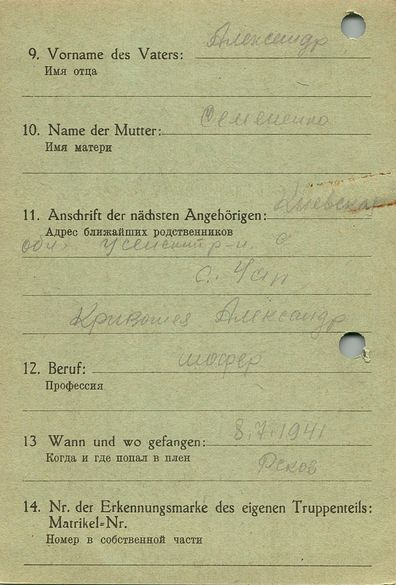 9. Vorname des Vaters: Александр
Имя отца
10. Name der Mutter: Семененко
Имя матери
11. Anschrift der nächsten Angehörigen: Киевская
Адрес ближайших родственников
обл. р-н. с
с.
Александр
12. Beruf: шофер
Профессия
13 Wann und wo gefangen: 8.7.1941
Когда и где попал в плен
Псков
14. Nr. der Erkennungsmarke des eigenen Truppenteils:
Matrikel-Nr.
Номер в собственной части